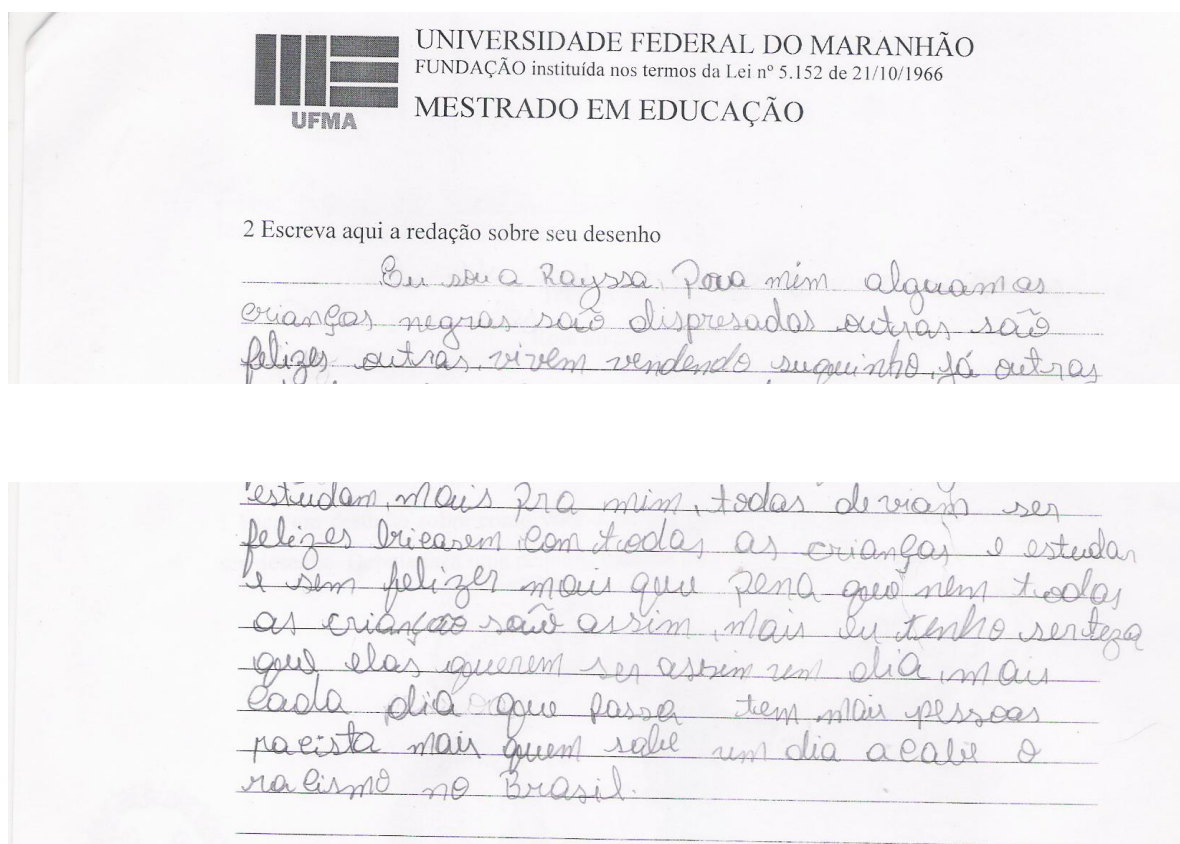 UNIVERSIDADE FEDERAL DO MARANHÃO
FUNDAÇÃO instituída nos termos da Lei nº 5.152 de 21/10/1966
MESTRADO EM EDUCAÇÃO
UFMA
2 Escreva aqui a redação sobre seu desenho
Eu sou a Rayssa, Para mim alguamas
crianças negras são dispresadas outras são
felizes outras, vivem vendendo suquinho, já outras
estudam, mais pra mim, todas deviam ser
felizes bricasem com todas as crianças e estudar
e sem felizer mais que pena que nem todas
as criançao são assim, mais eu tenho serteza
que elas querem ser assim um dia, mais
cada dia que passa tem mais pessoas
racista mais quem sabe um dia acabe o
racismo no Brasil.